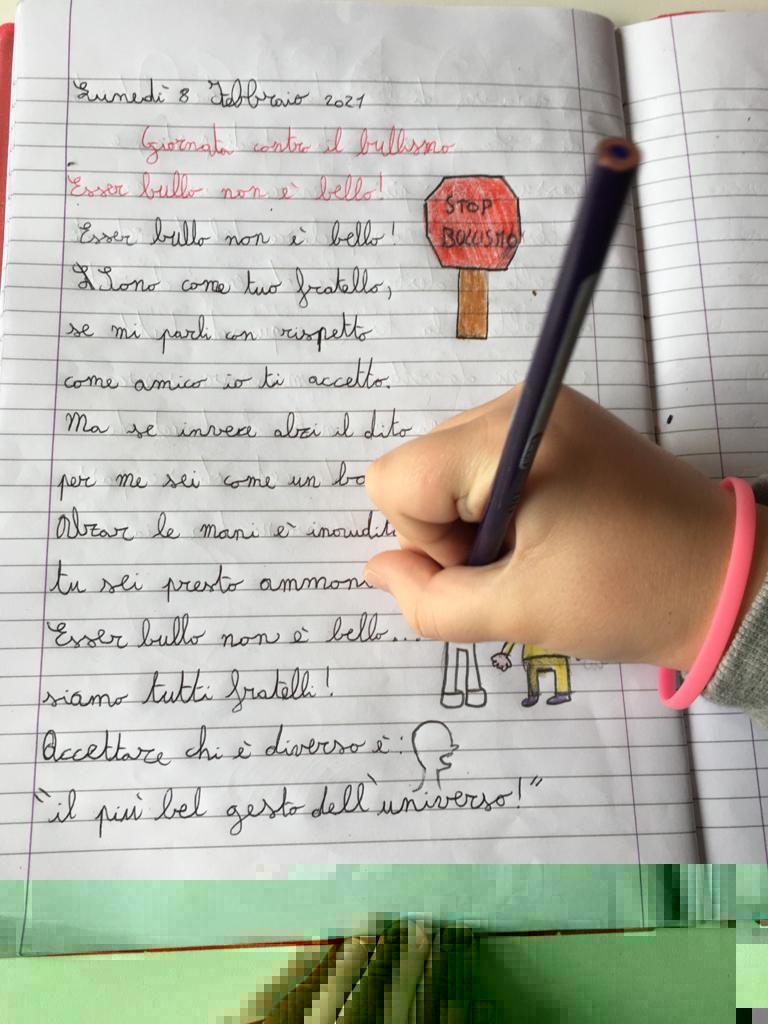 Lunedì 8 Febbraio 2021
Giornata contro il bullismo
Esser bullo non è bello!
STOP
BULLISMO
Esser bullo non è bello!
Sono come tuo fratello,
se mi parli con rispetto
come amico io ti accetto.
Ma se invece alzi il dito
per me sei come un
Alzar le mani è
tu sei presto
Esser bullo non è bello...
siamo tutti fratelli!
Accettare chi è diverso è:
"il più bel gesto dell'universo!"